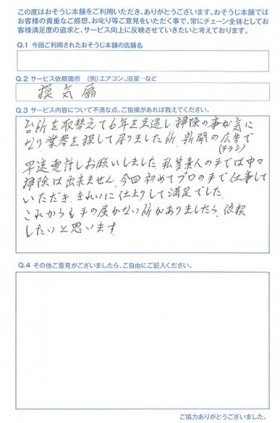 この度はおそうじ本舗をご利用いただき、ありがとうございます。おそうじ本舗では
お客様の貴重なご感想、お叱り等ご意見をいただく事で、常にチェーン全体としてお
客様満足度の追求と、サービス向上に反映させていきたいと考えております。
Q.1 今回ご利用されたおそうじ本舗の店舗名
Q.2 サービス依頼箇所 (例)エアコン、浴室…など
換気扇
Q.3 サービス内容について不満な点、ご指摘があれば教えてください。
台所を取替えて6年を見過し掃除の事が気に
なり業者を探して居りました所、新聞の広告で
(チラシ)
早速電話しお願いしました。私等素人の手では中々
掃除は出来ません。今回初めてプロの手で仕事して
いただき、きれいに仕上りして満足でした。
これからも手の届かない所がありましたら、依頼
したいと思います。
Q.4 その他ご意見がございましたら、ご自由にご記入ください。
ご協力ありがとうございました。